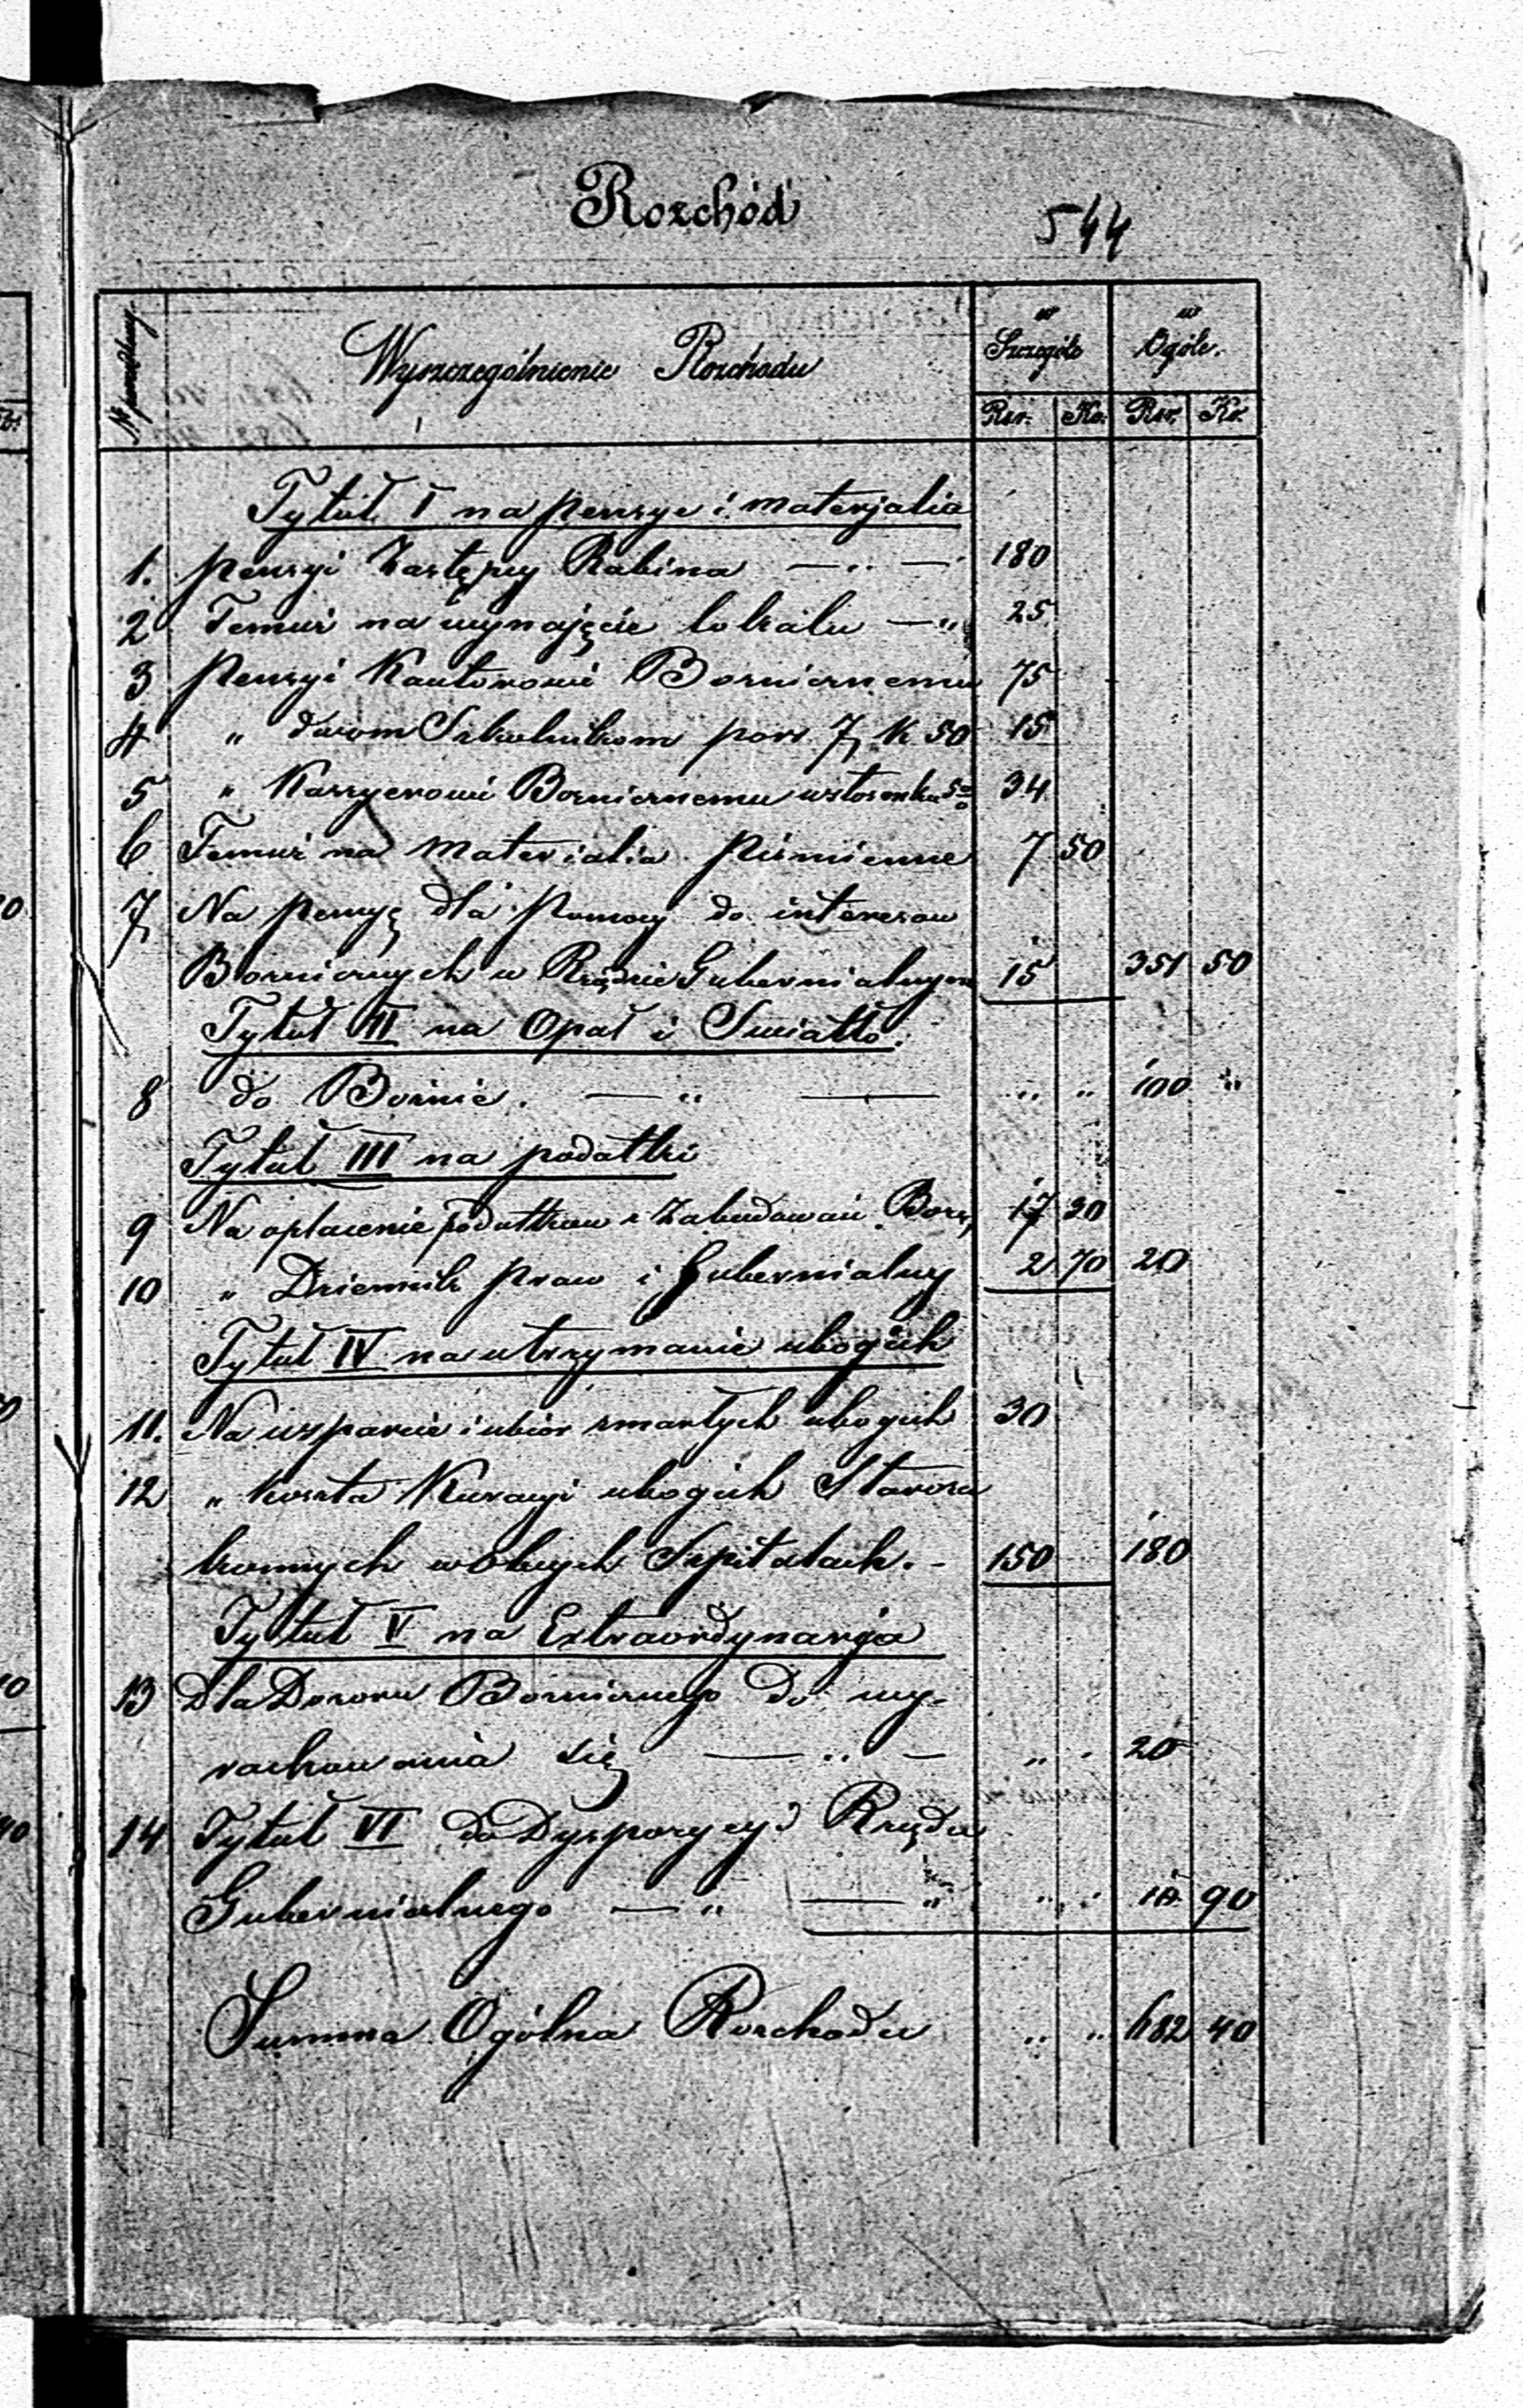 Rozchód
544
№ porządkowy
Wyszczególnienie Rozchodu
w Szczególe
w Ogóle.
Rsr. Ko. Rsr. Ko.
Tytuł I na pensye i materjalia
1. pensyi Zastępcy Rabina — „ — 180
2 Temuż na wynajęcie lokalu — „ 25
3 pensyi Kantorowi Bożnicznemu 75
4 „ dwom Szkolnikom po rs. 7 k 50 15
5 „ Kassyerowi Bożnicznemu w stosunku 5% 34
6 Temuż na materialia piśmienne 7 50
7 Na pensyę dla Pomocy do interesow
Bożnicznych w Rządzie Gubernialnym 15 351 50
Tytuł II na Opał i Swiatło.
8 do Bożnic. — „ — „ „ 100 „
Tytuł III na podatki
9 Na opłacenie podatkow z Zabudowań Boż. 17 30
10 „ Dziennik praw i Gubernialny 2 70 20
Tytuł IV na utrzymanie ubogich
11. Na wsparcie i ubior zmarłych ubogich 30
12 „ koszta Kuracyi ubogich Staroza
konnych w obcych Szpitalach. - 150 180
Tytuł V na Extraordynarja
13 Dla Dozoru Bożnicznego do wy-
rachowania się — „ — „ „ 20
14 Tytuł VI do Dyspozycyi Rządu
Gubernialnego — „ — „ „ „ 10 90
Summa Ogólna Rozchodu „ „ 682 40